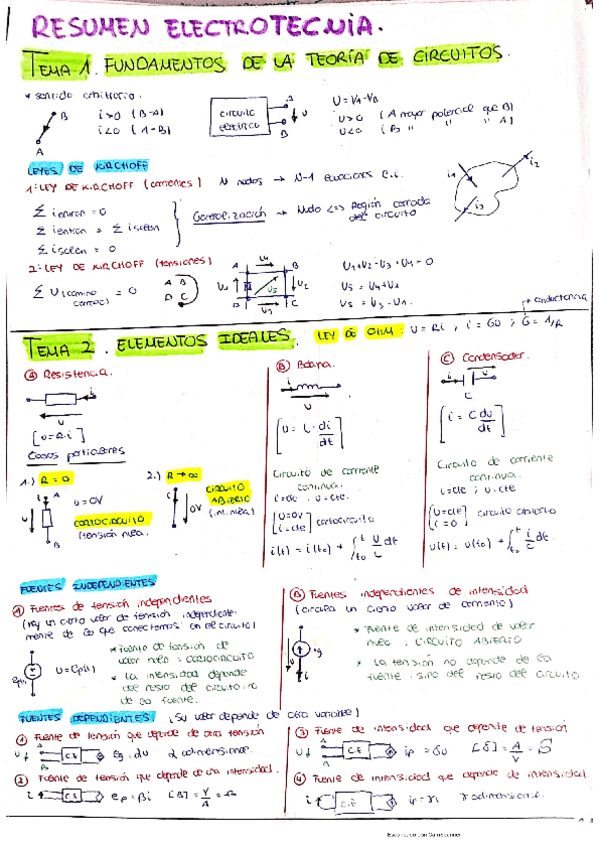 RESUMEN ELECTROTECNIA.
TEMA 1. FUNDAMENTOS DE LA TEORÍA DE CIRCUITOS.
* sentido arbitrario.
B
A
i>0 (B-A)
i<0 (A-B)
CIRCUITO ELÉCTRICO
A
B
U
U = VA-VB
U>0 (A mayor potencial que B)
U<0 (B " " " A)
LEYES DE KIRCHOFF
1ª LEY DE KIRCHOFF (corrientes) N nodos → N-1 ecuaciones
Σ ientran = 0
Σ ientran = Σ isalen
Σ isalen = 0
Generalización → Nudo <=> Región cerrada del circuito
i1
i2
i3
2ª LEY DE KIRCHOFF (tensiones)
Σ U (camino cerrado) = 0
A B
D C
A
B
C
D
U1
U2
U3
U4
U5
U1+U2-U3+U4=0
U5 = U4+U1
U5 = U3-U2.
TEMA 2. ELEMENTOS IDEALES. LEY DE OHM: U = Ri ; i = GU ; G = 1/R
→ conductancia
Ⓐ Resistencia.
i
U
[U=R·i]
Casos particulares
1.) R = 0
A
B
i
U
U=0V
CORTOCIRCUITO
tensión nula.
2.) R → ∞
i
0V
CIRCUITO ABIERTO
(int. nula)
Ⓑ Bobina.
i
U
[U = L · di/dt]
Circuito de corriente continua.
i=cte ; U=cte.
[U=0V
i=cte] cortocircuito
i(t) = i(t0) + ∫t0 t U/L dt
Ⓒ Condensador.
i
U
C
[i = C dU/dt]
Circuito de corriente continua.
i=cte ; U=cte.
[U=cte
i=0] circuito abierto
U(t) = U(t0) + ∫t0 t i/C dt
FUENTES INDEPENDIENTES
Ⓐ Fuentes de tensión independientes
(hay un cierto valor de tensión independientemente de lo que conectemos en el circuito)
U=eg(t)
* Fuente de tensión de valor nulo: CORTOCIRCUITO
* La intensidad depende del resto del circuito no de la fuente.
Ⓑ Fuentes independientes de intensidad
(circula un cierto valor de corriente)
U
ig
* Fuente de intensidad de valor nulo: CIRCUITO ABIERTO
* La tensión no depende de la fuente sino del resto del circuito
FUENTES DEPENDIENTES (Su valor depende de otra variable)
① Fuente de tensión que depende de otra tensión
U
A
B
C.E
eg = αU α adimensional.
② Fuente de tensión que depende de una intensidad.
i
C.E
eg = βi [β] = V/A = Ω
③ Fuente de intensidad que depende de tensión
U
A
B
C.E
ig = δU [δ] = A/V = S
④ Fuente de intensidad que depende de intensidad.
i
C.E
ig = γi γ adimensional.
Escaneado con CamScanner